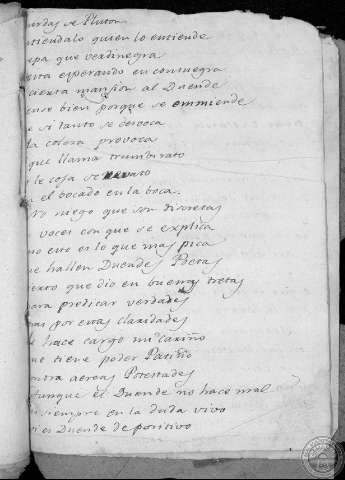 urdas de Pluton
tiendalo quien lo entiende
epa que verdinegra
esta esperando en consuegra
cierta mansion al Duende
ense bien porque se emmiende
e si tanto se
la colera provoca
que llama trumbirato
le coja se
a el bocado en la boca.
No niego que son discretas
voces con que se explica
mo esto es lo que mas pica
ue hallen Duendes Poetas
erto que dio en buenas tretas
para predicar verdades
mas por estas claridades
hace cargo mi cariño
que tiene poder Patiño
ontra aereas Potestades
Aunque el Duende no hace mal
siempre en la duda vivo
si es Duende de positivo